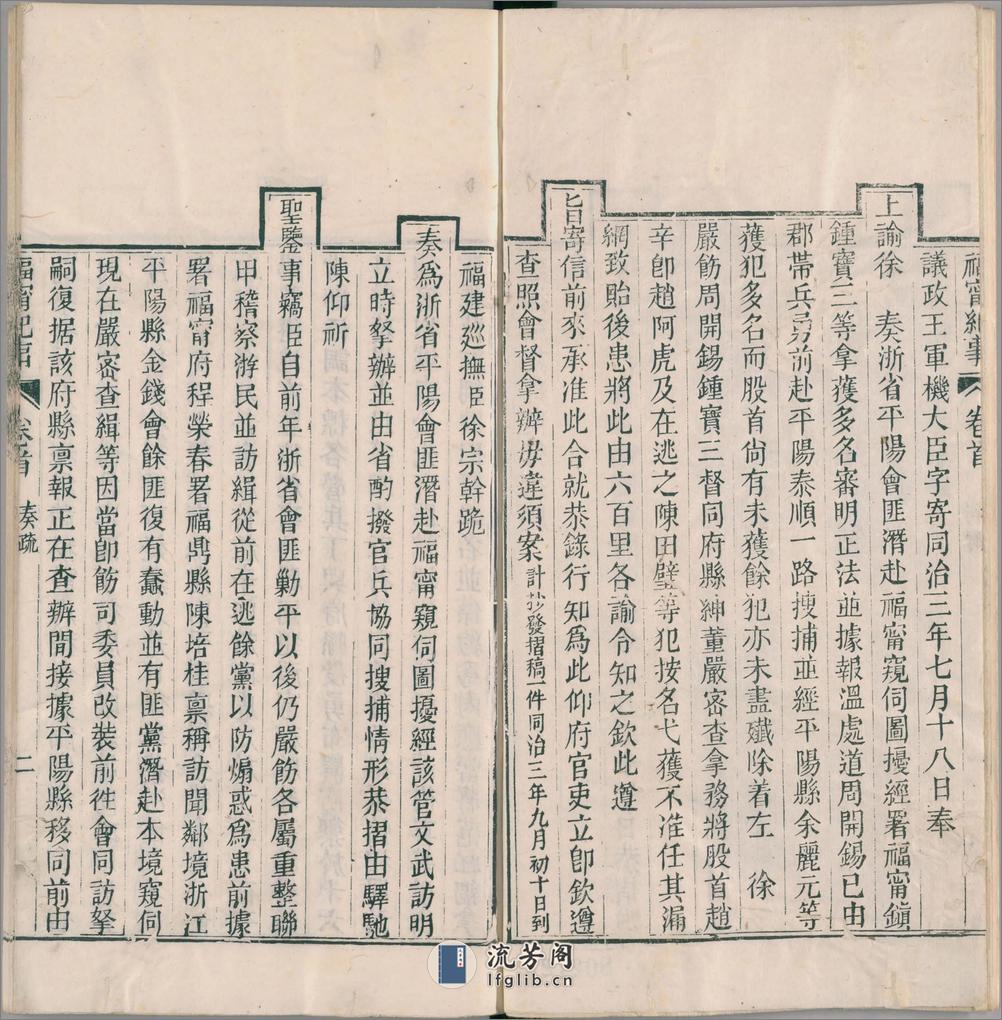 福甯紀事 卷首
議政王軍機大臣字寄同治三年七月十八日奉
上諭徐 奏浙省平陽會匪潛赴福甯窺伺圖擾經署福甯鎭
鍾寶三等拿獲多名審明正法並據報溫處道周開錫已由
郡帶兵勇前赴平陽泰順一路搜捕並經平陽縣余麗元等
獲犯多名而股首尙有未獲餘犯亦未盡殲除着左 徐
嚴飭周開錫鍾寶三督同府縣紳董嚴密查拿務將股首趙
辛卽趙阿虎及在逃之陳田壁等犯按名弋獲不准任其漏
網致貽後患將此由六百里各諭令知之欽此遵
旨寄信前來承准此合就恭錄行知爲此仰府官吏立卽欽遵
查照會督拿辦毋違須案計抄發摺稿一件同治三年九月初十日到
福建巡撫臣徐宗幹跪
奏爲浙省平陽會匪潛赴福甯窺伺圖擾經該管文武訪明
立時拏辦並由省酌撥官兵協同搜捕情形恭摺由驛馳
陳仰祈
聖鑒事竊臣自前年浙省會匪勦平以後仍嚴飭各屬重整聯
甲稽察游民並訪緝從前在逃餘黨以防煽惑爲患前據
署福甯府程榮春署福鼎縣陳培桂稟稱訪聞鄰境浙江
平陽縣金錢會餘匪復有蠢動並有匪黨潛赴本境窺伺
現在嚴密查緝等因當卽飭司委員改裝前徃會同訪拏
嗣復据該府縣稟報正在查辦間接據平陽縣移同前由
福甯紀事 卷首 奏疏 二
流芳阁
lfglib.cn